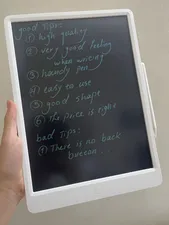 good tips:
① high quality
② very good feeling
when writing
③ handy pen
④ easy to use
⑤ good shape
⑥ The price is right
bad tips:
① There is no back
button...